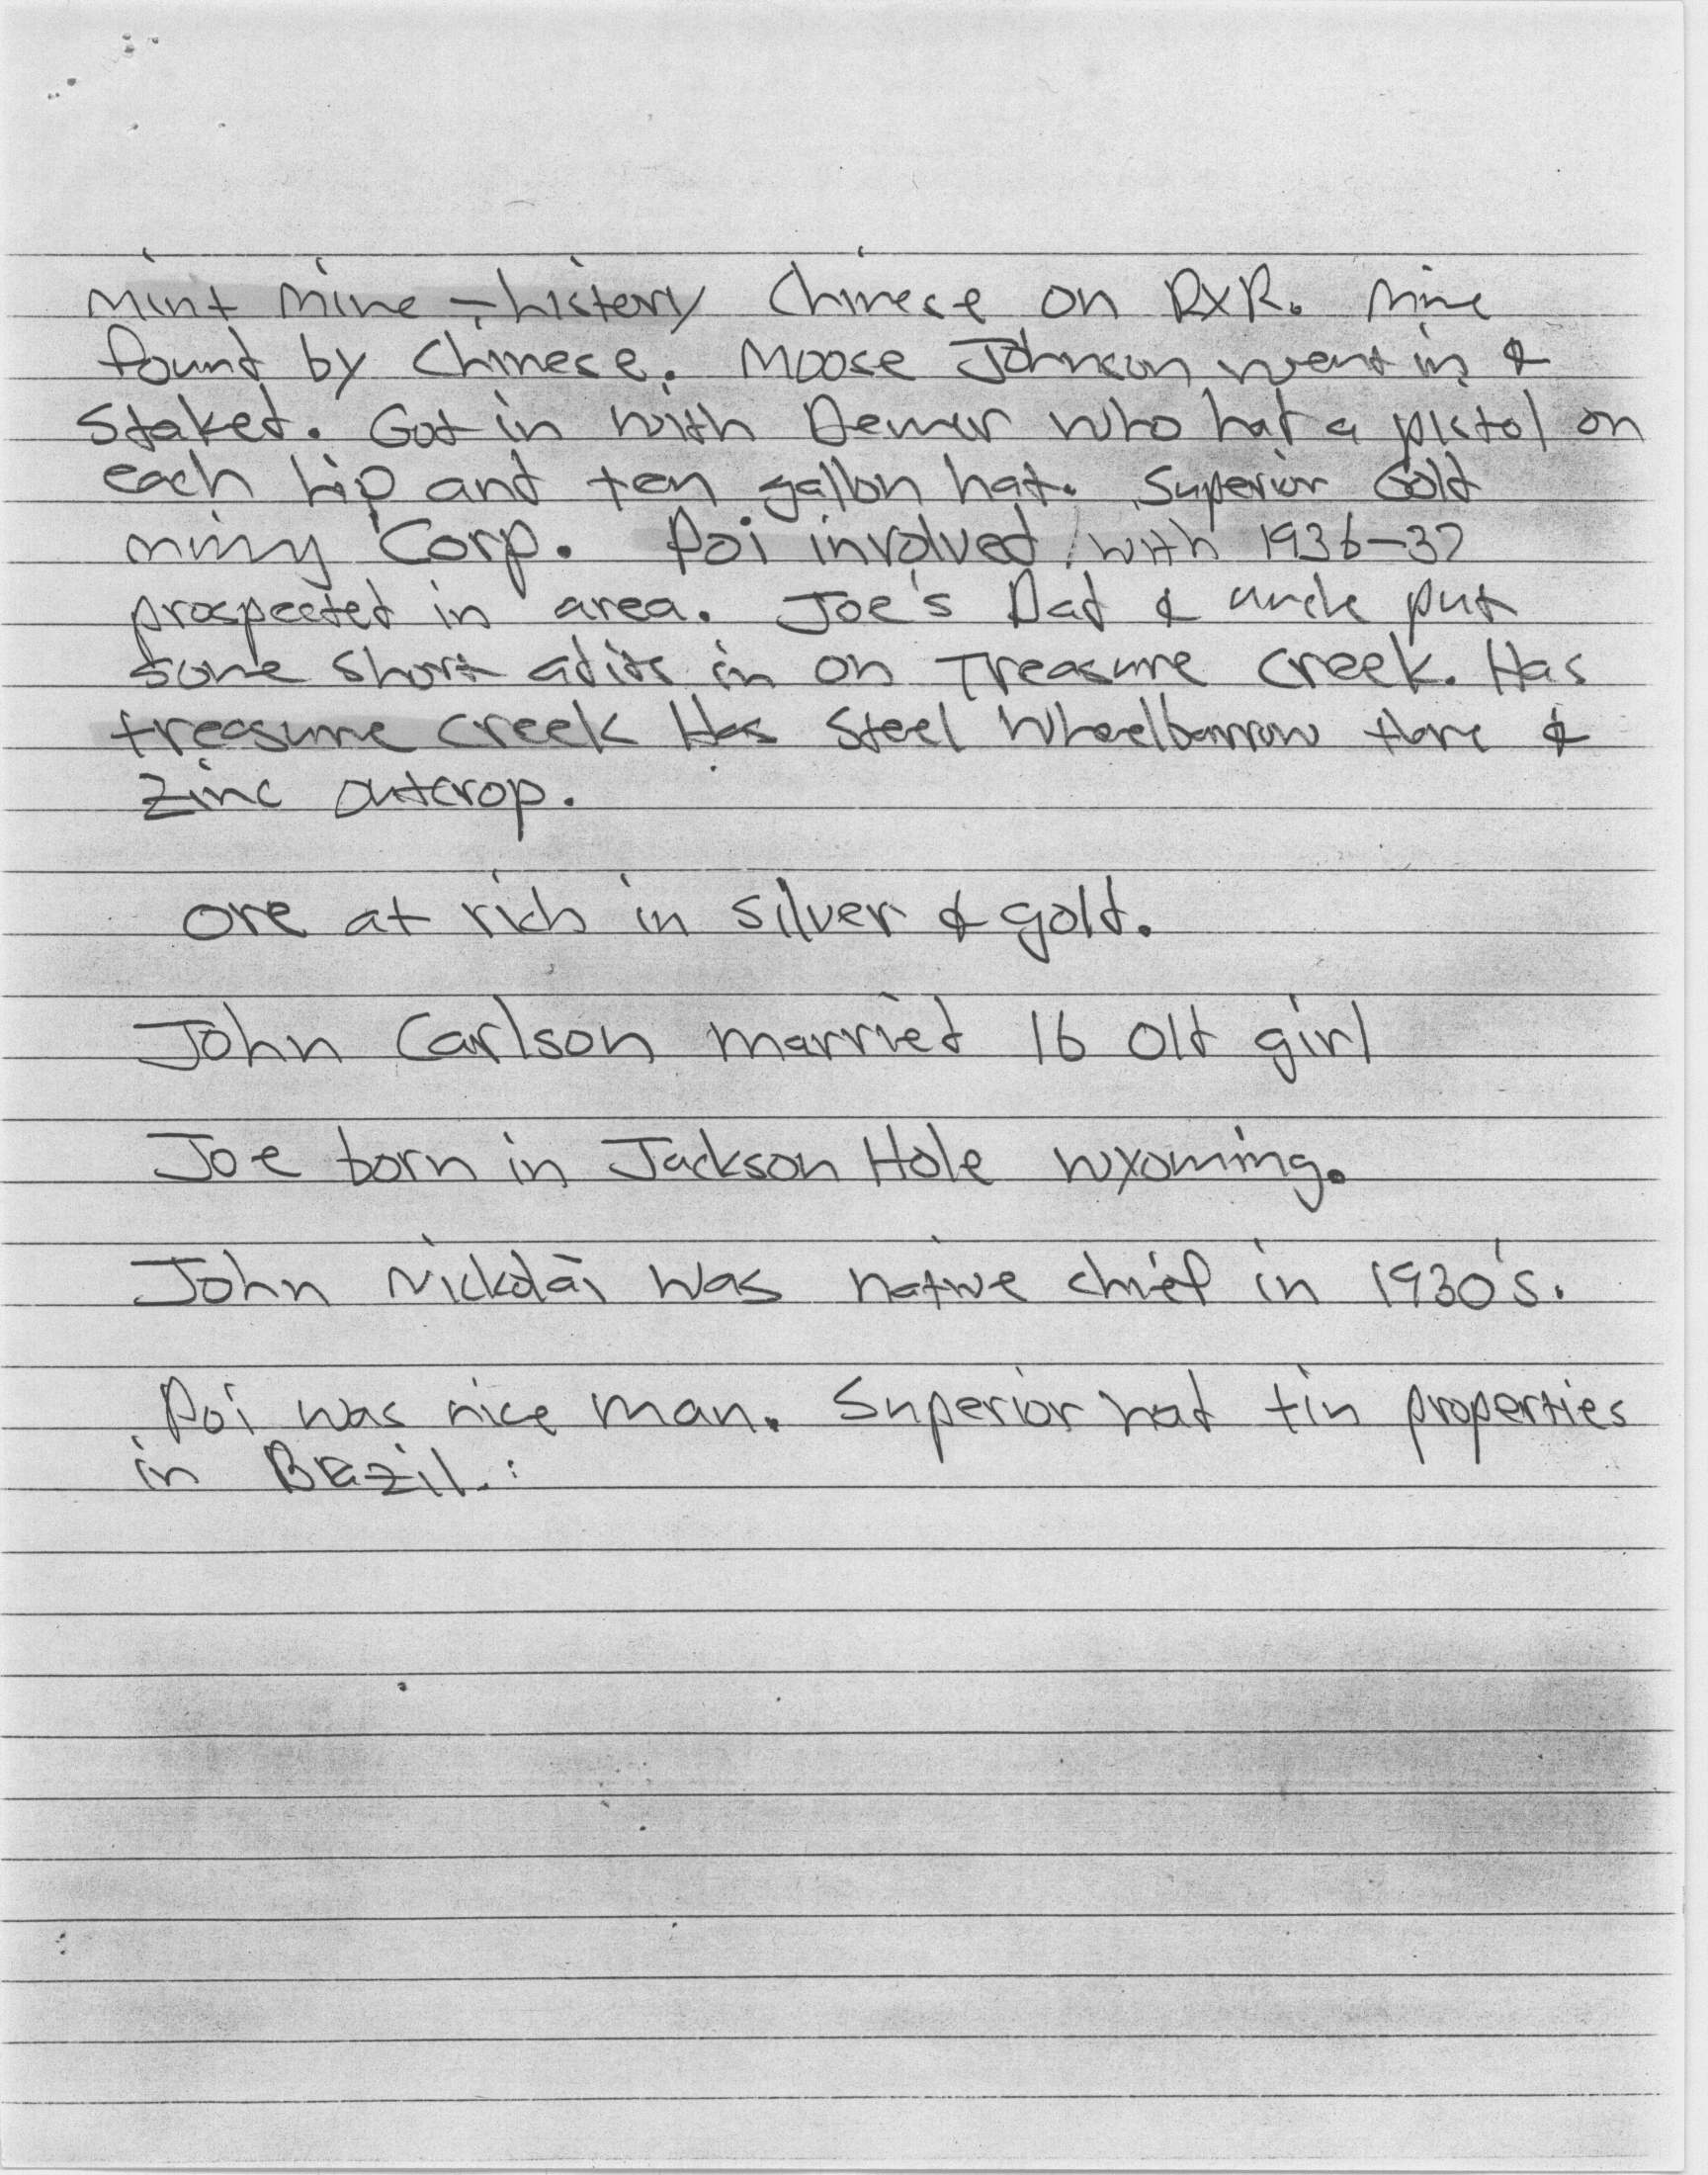 Mint Mine - history Chinese on RxR. Mine
found by Chinese. Moose Johnson went in &
staked. Got in with Denver who had a pistol on
each hip and ten gallon hat. Superior Gold
mining Corp. Poi involved with 1936-37
prospected in area. Joe's Dad & uncle put
some short adits in on Treasure Creek. Has
treasure creek Has steel wheelbarrow there &
zinc outcrop.
ore at rich in silver & gold.
John Carlson married 16 old girl
Joe born in Jackson Hole Wyoming.
John Nickolai was native chief in 1930's.
Poi was nice man. Superior had tin properties
in Brazil.